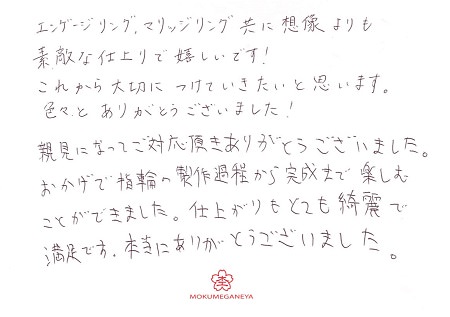 エンゲージリング、マリッジリング共に想像よりも
素敵な仕上りで嬉しいです!
これから大切につけていきたいと思います。
色々とありがとうございました!
親見になってご対応頂きありがとうございました。
おかげで指輪の製作過程から完成まで楽しむ
ことができました。仕上がりもとても綺麗で
満足です。本当にありがとうございました。
MOKUMEGANEYA